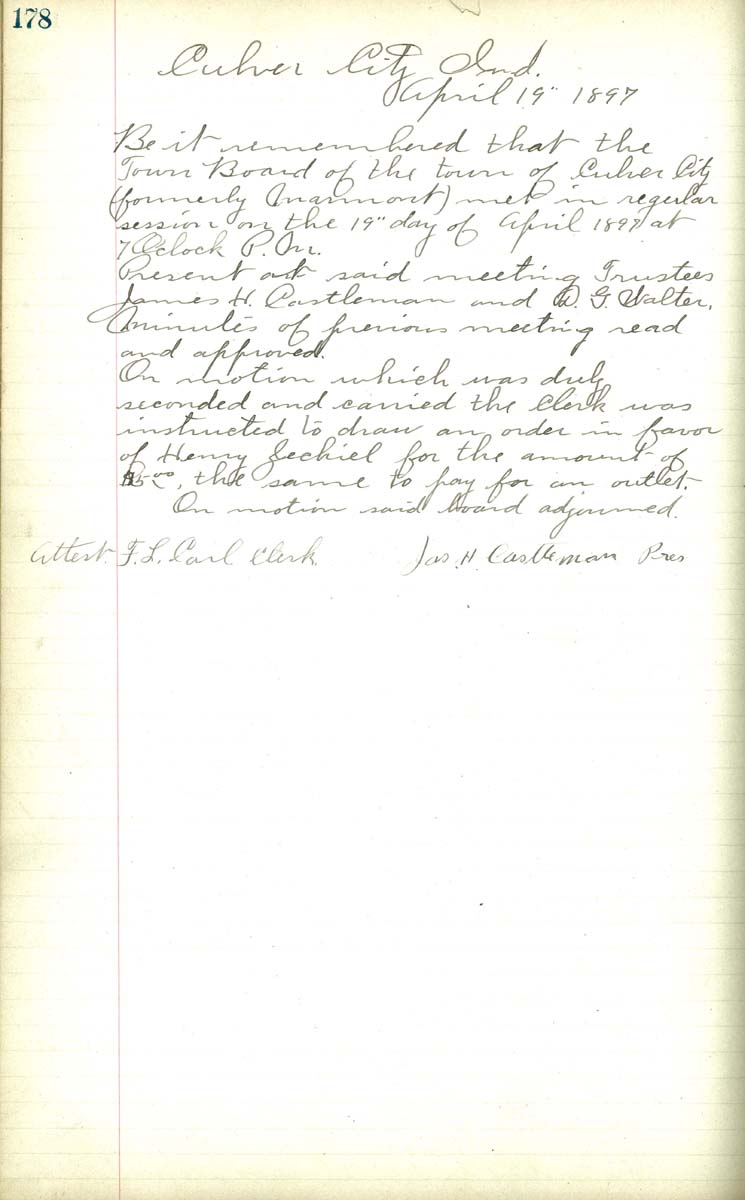 178
Culver City Ind.
April 19" 1897
Be it remembered that the
Town Board of the town of Culver City
(formerly Marmont) met in regular
session on the 19" day of April 1897 at
7 Oclock P.M.
Present at said meeting Trustees
James H. Castleman and D. G. Walter.
Minutes of previous meeting read
and approved.
On motion which was duly
seconded and carried the clerk was
instructed to draw an order in favor
of Henry Zechiel for the amount of
the same to pay for an outlet.
On motion said board adjourned.
Attest F. L. Carl Clerk. Jas. H Castleman Pres